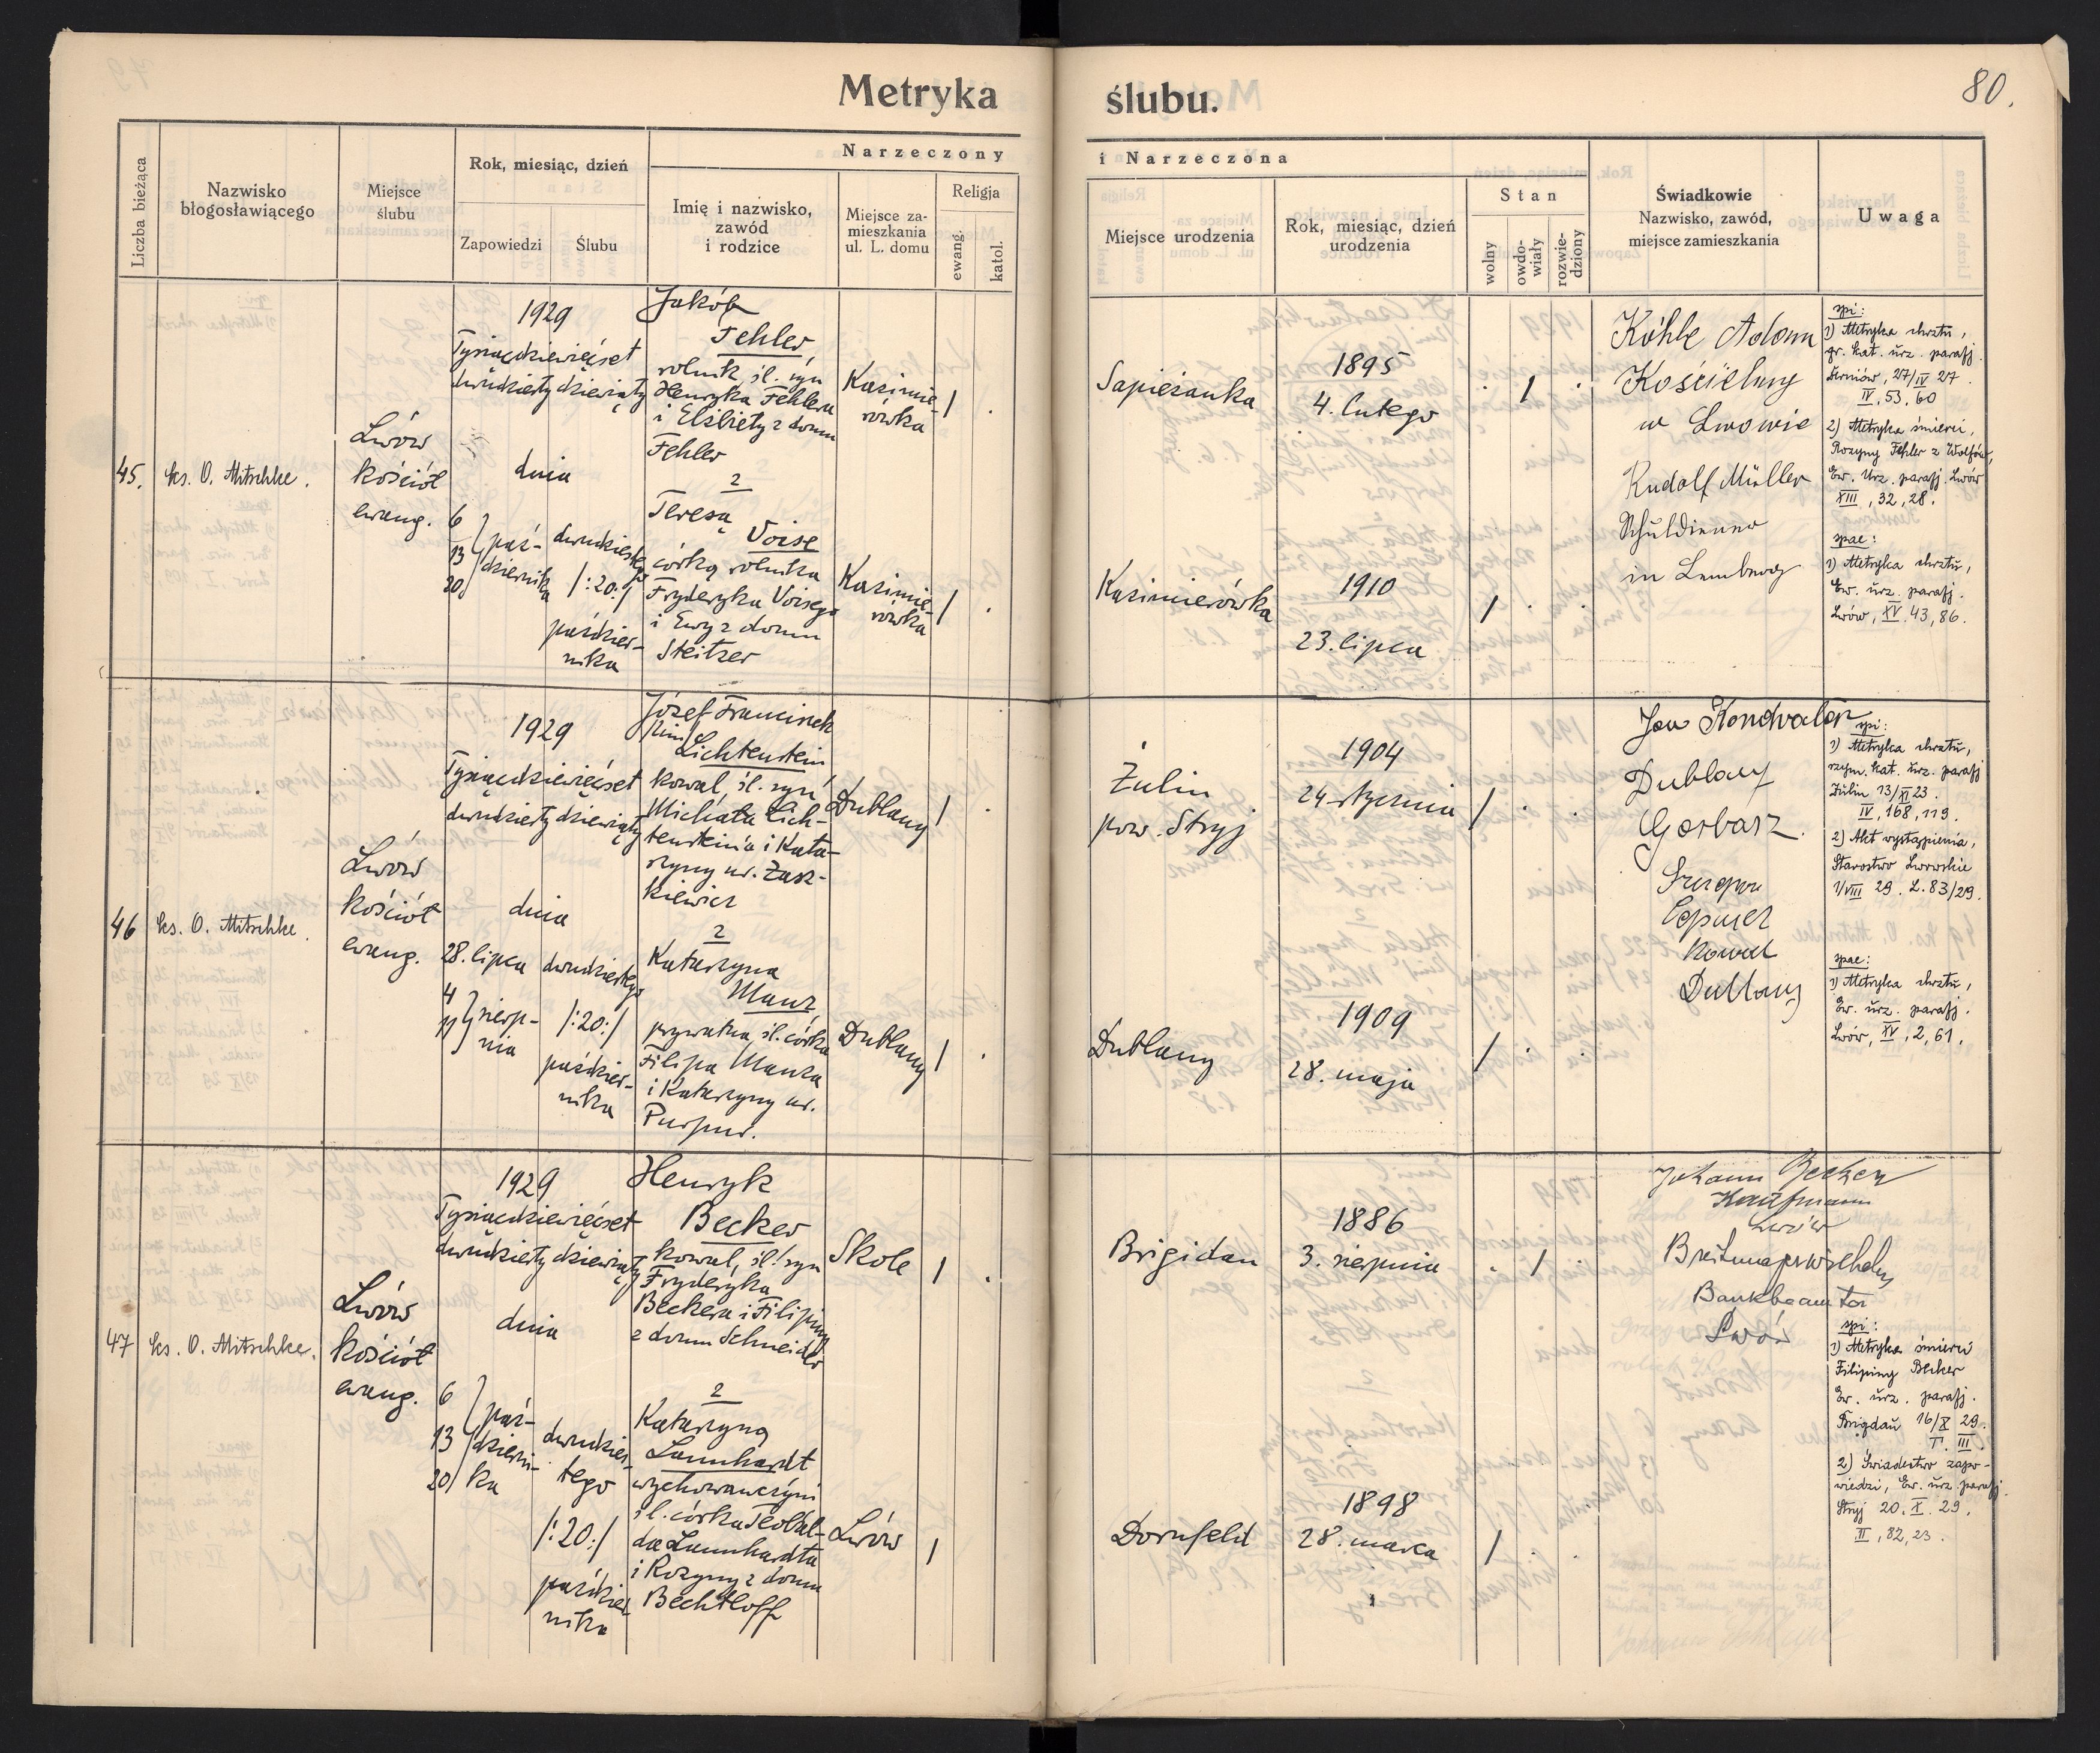 Metryka ślubu.
80.
Liczba bieżąca
Nazwisko
błogosławiącego
Miejsce
ślubu
Rok, miesiąc, dzień
Zapowiedzi
Ślubu
Narzeczony
i Narzeczona
Imię i nazwisko,
zawód
i rodzice
Miejsce za-
mieszkania
ul. L. domu
Religja
ewang.
katol.
Miejsce urodzenia
Rok, miesiąc, dzień
urodzenia
Stan
wolny
owdo-
wiały
rozwie-
dziony
Świadkowie
Nazwisko, zawód,
miejsce zamieszkania
Uwaga
45.
ks. O. Mitschke.
Lwów
kościół
ewang.
1929
Tysiącdziewięćset
dwudziesty dziewiąty
dnia
6
13
20
paź-
dziernika
dwudziestego
/:20:/
paździer-
nika
Jakób
Fehler
rolnik, śl. syn
Henryka Fehlera
i Elżbiety z domu
Fehler
z
Teresą
Voise
córką rolnika
Fryderyka Voisego
i Ewy z domu
Steitzer
Kazimie-
rówka
1
.
Kazimie-
rówka
1
.
Sapieżanka
1895
4. lutego
. 1 .
Kazimierówka
1910
23. lipca
1 . .
Köhle Adam
Kościelny
w Lwowie
Rudolf Müller
Schuldiener
in Lemberg
spi:
1) Metryka chrztu,
gr. kat. urz. parafj.
27/IV 27.
IV, 53, 60
2) Metryka śmierci,
Rozyny Fehler z Wolfów,
Ew. Urz. parafj. Lwów
XIII, 32, 28.
spae:
1) Metryka chrztu,
Ew. urz. parafj.
Lwów, XV. 43, 86.
46
ks. O. Mitschke.
Lwów
kościół
ewang.
1929
Tysiącdziewięćset
dwudziesty dziewiąty
dnia
28. lipca
4
11
sierp-
nia
dwudziestego
/:20:/
paździer-
nika
Józef Franciszek
/2 im/
Lichtenstein
kowal, śl. syn
Michała Lich-
tensteina i Kata-
rzyny ur. Zasz-
kiewicz
z
Katarzyna
Manz,
prywatna, śl. córka
Filipa Manza
i Katarzyny ur.
Purpur.
Dublany
1
.
Dublany
1
.
Żulin
pow. Stryj
1904
24 stycznia
1 . .
Dublany
1909
28. maja
1 . .
Jan Kondrator
Dublany
Garbarz.
kowal
Dublany
spi:
1) Metryka chrztu,
rzym. kat. urz. parafj
Żulin 13/XI 23.
IV, 168, 119.
2) Akt wystąpienia,
Starostwo Lwowskie
1/VIII 29. L. 83/29.
spae:
1) Metryka chrztu,
Ew. urz. parafj.
Lwów, XV, 2, 61.
47
ks. O. Mitschke.
Lwów
kościół
ewang.
1929
Tysiącdziewięćset
dwudziesty dziewiąty
dnia
6
13
20
paź-
dzierni-
ka
dwudzies-
tego
/:20:/
paździer-
nika
Henryk
Becker
kowal, śl. syn
Fryderyka
Beckera i Filipiny
z domu Schneider
z
Katarzyną
Lannhardt
wychowawczyni
śl. córka Teobal-
da Lannhardta
i Rozyny z domu
Bechtloff
Skole
1
.
Lwów
1
Brigidau
1886
3. sierpnia
. 1 .
Dornfeld
1898
28. marca
1 . .
Johann Becker
Kaufmann
Lwów
Breitmayer Wilhelm
Bankbeamter
Lwów
spi:
1) Metryka śmierci
Filipiny Becker
Ew. urz. parafj.
Brigidau 16/X 29.
T. III.
2) Świadectwo zapo-
wiedzi, Ew. urz. parafj.
Stryj 20. X. 29.
II, 82, 23.